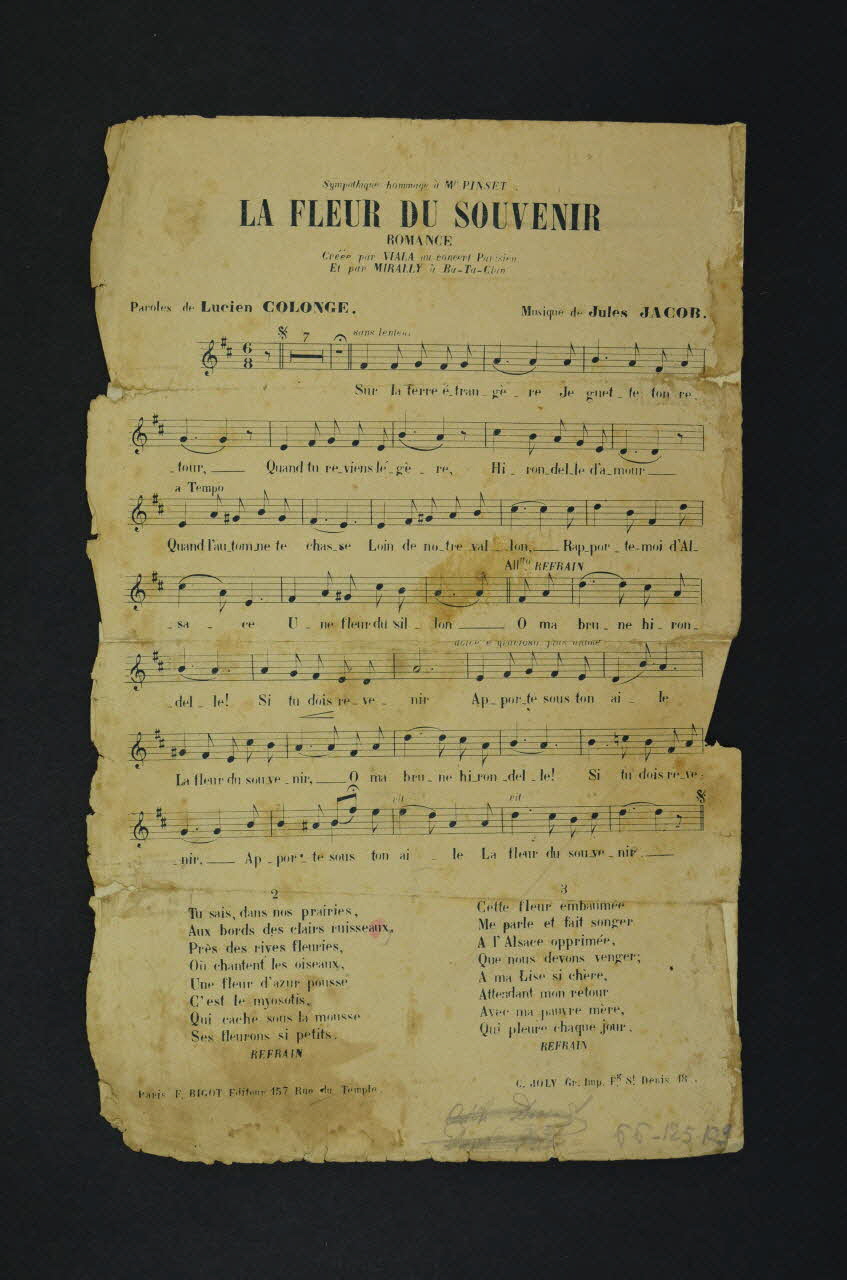 Sympathique hommage à Mr PINSET.
LA FLEUR DU SOUVENIR
ROMANCE
Créée par VIALA au concert Parisien
Et par MIRALLY à Ba-Ta-Clan
Paroles de Lucien COLONGE.
Musique de Jules JACOB.
7
sans lenteur
6
8
Sur la Terre é_tran_gè_re Je guet_te ton re_
_tour,___ Quand tu re_viens lé_gè_re, Hi_ron_del_le d'a_mour___
a Tempo
Quand l'au_tom_ne te chas_se Loin de no_tre val_lon,___ Rap_por_te-moi d'Al_
Allto REFRAIN
_sa_ce U_ne fleur du sil_lon___ O ma bru_ne hi_ron_
_del_le! Si tu dois re_ve_nir Ap_por_te sous ton ai_le
La fleur du sou_ve_nir,___ O ma bru_ne hi_ron_del_le! Si tu dois re_ve_
rit
rit
_nir,___ Ap_por_te sous ton ai_le La fleur du sou_ve_nir.___
2
Tu sais, dans nos prairies,
Aux bords des clairs ruisseaux,
Près des rives fleuries,
Où chantent les oiseaux,
Une fleur d'azur pousse
C'est le myosotis,
Qui cache sous la mousse
Ses fleurons si petits.
REFRAIN
3
Cette fleur embaumée
Me parle et fait songer
A l'Alsace opprimée,
Que nous devons venger;
A ma Lise si chère,
Attendant mon retour
Avec ma pauvre mère,
Qui pleure chaque jour.
REFRAIN
Paris F. BIGOT Editeur 157 Rue du Temple
C. JOLY Gr. Imp. Fg St Denis 18.
66-125.129